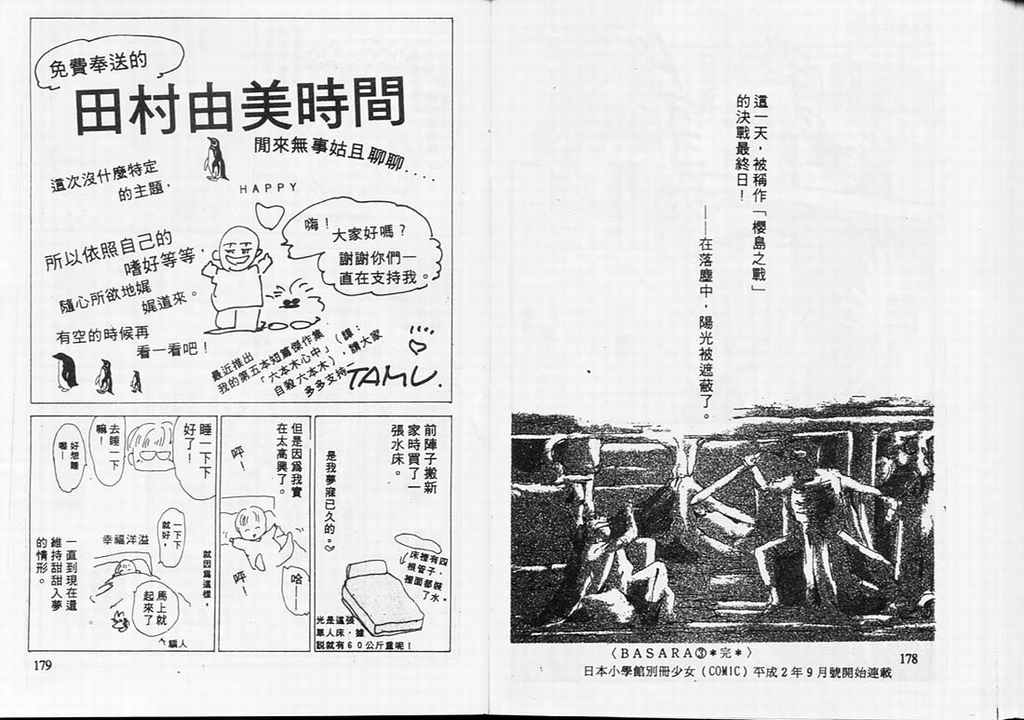 這一天，被稱作「櫻島之戰」
的決戰最終日！
——在落塵中，陽光被遮蔽了。
〈BASARA③＊完＊〉
日本小學館別冊少女（COMIC）平成2年9月號開始連載
178
免費奉送的
田村由美時間
閒來無事姑且聊聊....
這次沒什麼特定
的主題，
HAPPY
嗨！
大家好嗎？
謝謝你們一
直在支持我。
所以依照自己的
嗜好等等，
隨心所欲地娓
娓道來。
有空的時候再
看一看吧！
最近推出
我的第五本短篇傑作集
「六本木心中」（譯：
自殺六本木），請大家
多多支持—
TAMU.
前陣子搬新
家時買了一
張水床。
是我夢寐已久的。
床裡有四
根管子，
裡面都裝
了水。
光是這張
單人床，據
說就有60公斤重呢！
但是因為我實
在太高興了。
呼！
呼！
哈—
就因為這樣，
睡一下下
好了！
去睡一下
嘛！
好想睡
喔！
一下下
就好，
幸福洋溢
馬上就
起來了
騙人
一直到現在還
維持甜甜入夢
的情形。
179